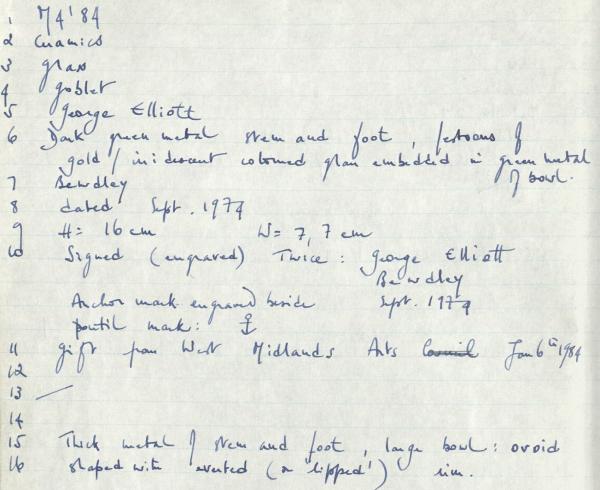 1 M4'84
2 Ceramics
3 glass
4 goblet
5 George Elliott
6 Dark green metal stem and foot, festoons of
gold / iridescent coloured glass embedded in green metal
of bowl.
7 Bewdley
8 dated Sept. 1974
9 H= 16 cm W= 7,7 cm
10 Signed (engraved) Twice : George Elliott
Bewdley
Sept. 1974
Anchor mark engraved beside
pontil mark: ⚓
11 gift from West Midlands Arts Council Jan 6th 1984
12
13 —
14
15 Thick metal of stem and foot, large bowl: ovoid
16 shaped with everted (or 'lipped') rim.